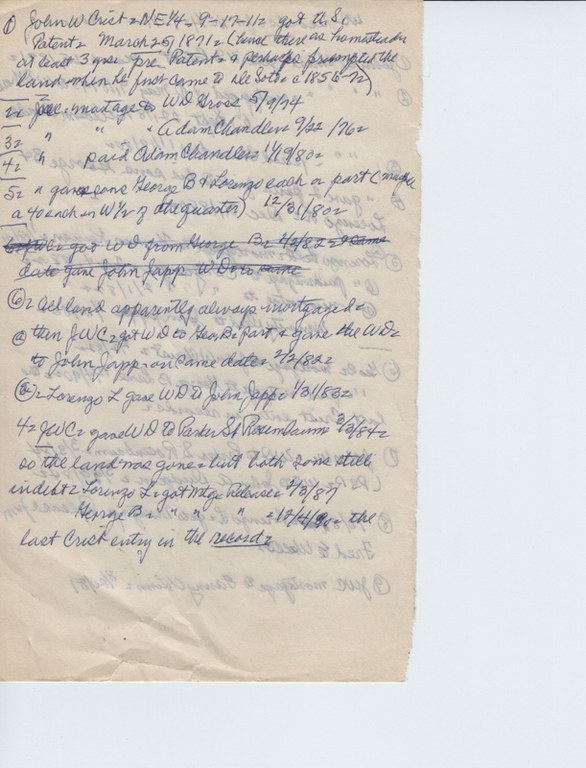 ① John W Crist = NE 1/4 = 9-17-11 = got the S.
Patent = March 25/1871 = (lived there as homesteader
at least 3 yrs pre Patent = & perhaps preempted the
land when he first came to De Soto = c 1856-7 =)
2= JWC = mortage to WD Gross 5/9/74
3= " " " Adam Chandler = 9/22/76 =
4= " paid Adam Chandler = 1/19/80 =
5= " gave sons George B & Lorenzo each a part (maybe
a 40 each in W 1/2 of the quarter) 12/31/80 =
JWC = got WD from George B = 2/2/82 = & same
date gave John Japp WD to same
⑥ = all land apparently always mortgaged =
ⓐ then JWC = got WD to Geo. B = part & gave the WD =
to John Japp = on same date = 2/2/82 =
ⓑ = Lorenzo L gave WD to John Japp = 1/31/83 =
4 = JWC = gave WD to Parker S 3/3/84 =
so the land was gone = but both sons still
in debt = Lorenzo L = got Mtge Release = 2/3/87
George B = " " " = the
last Crist entry in the record =